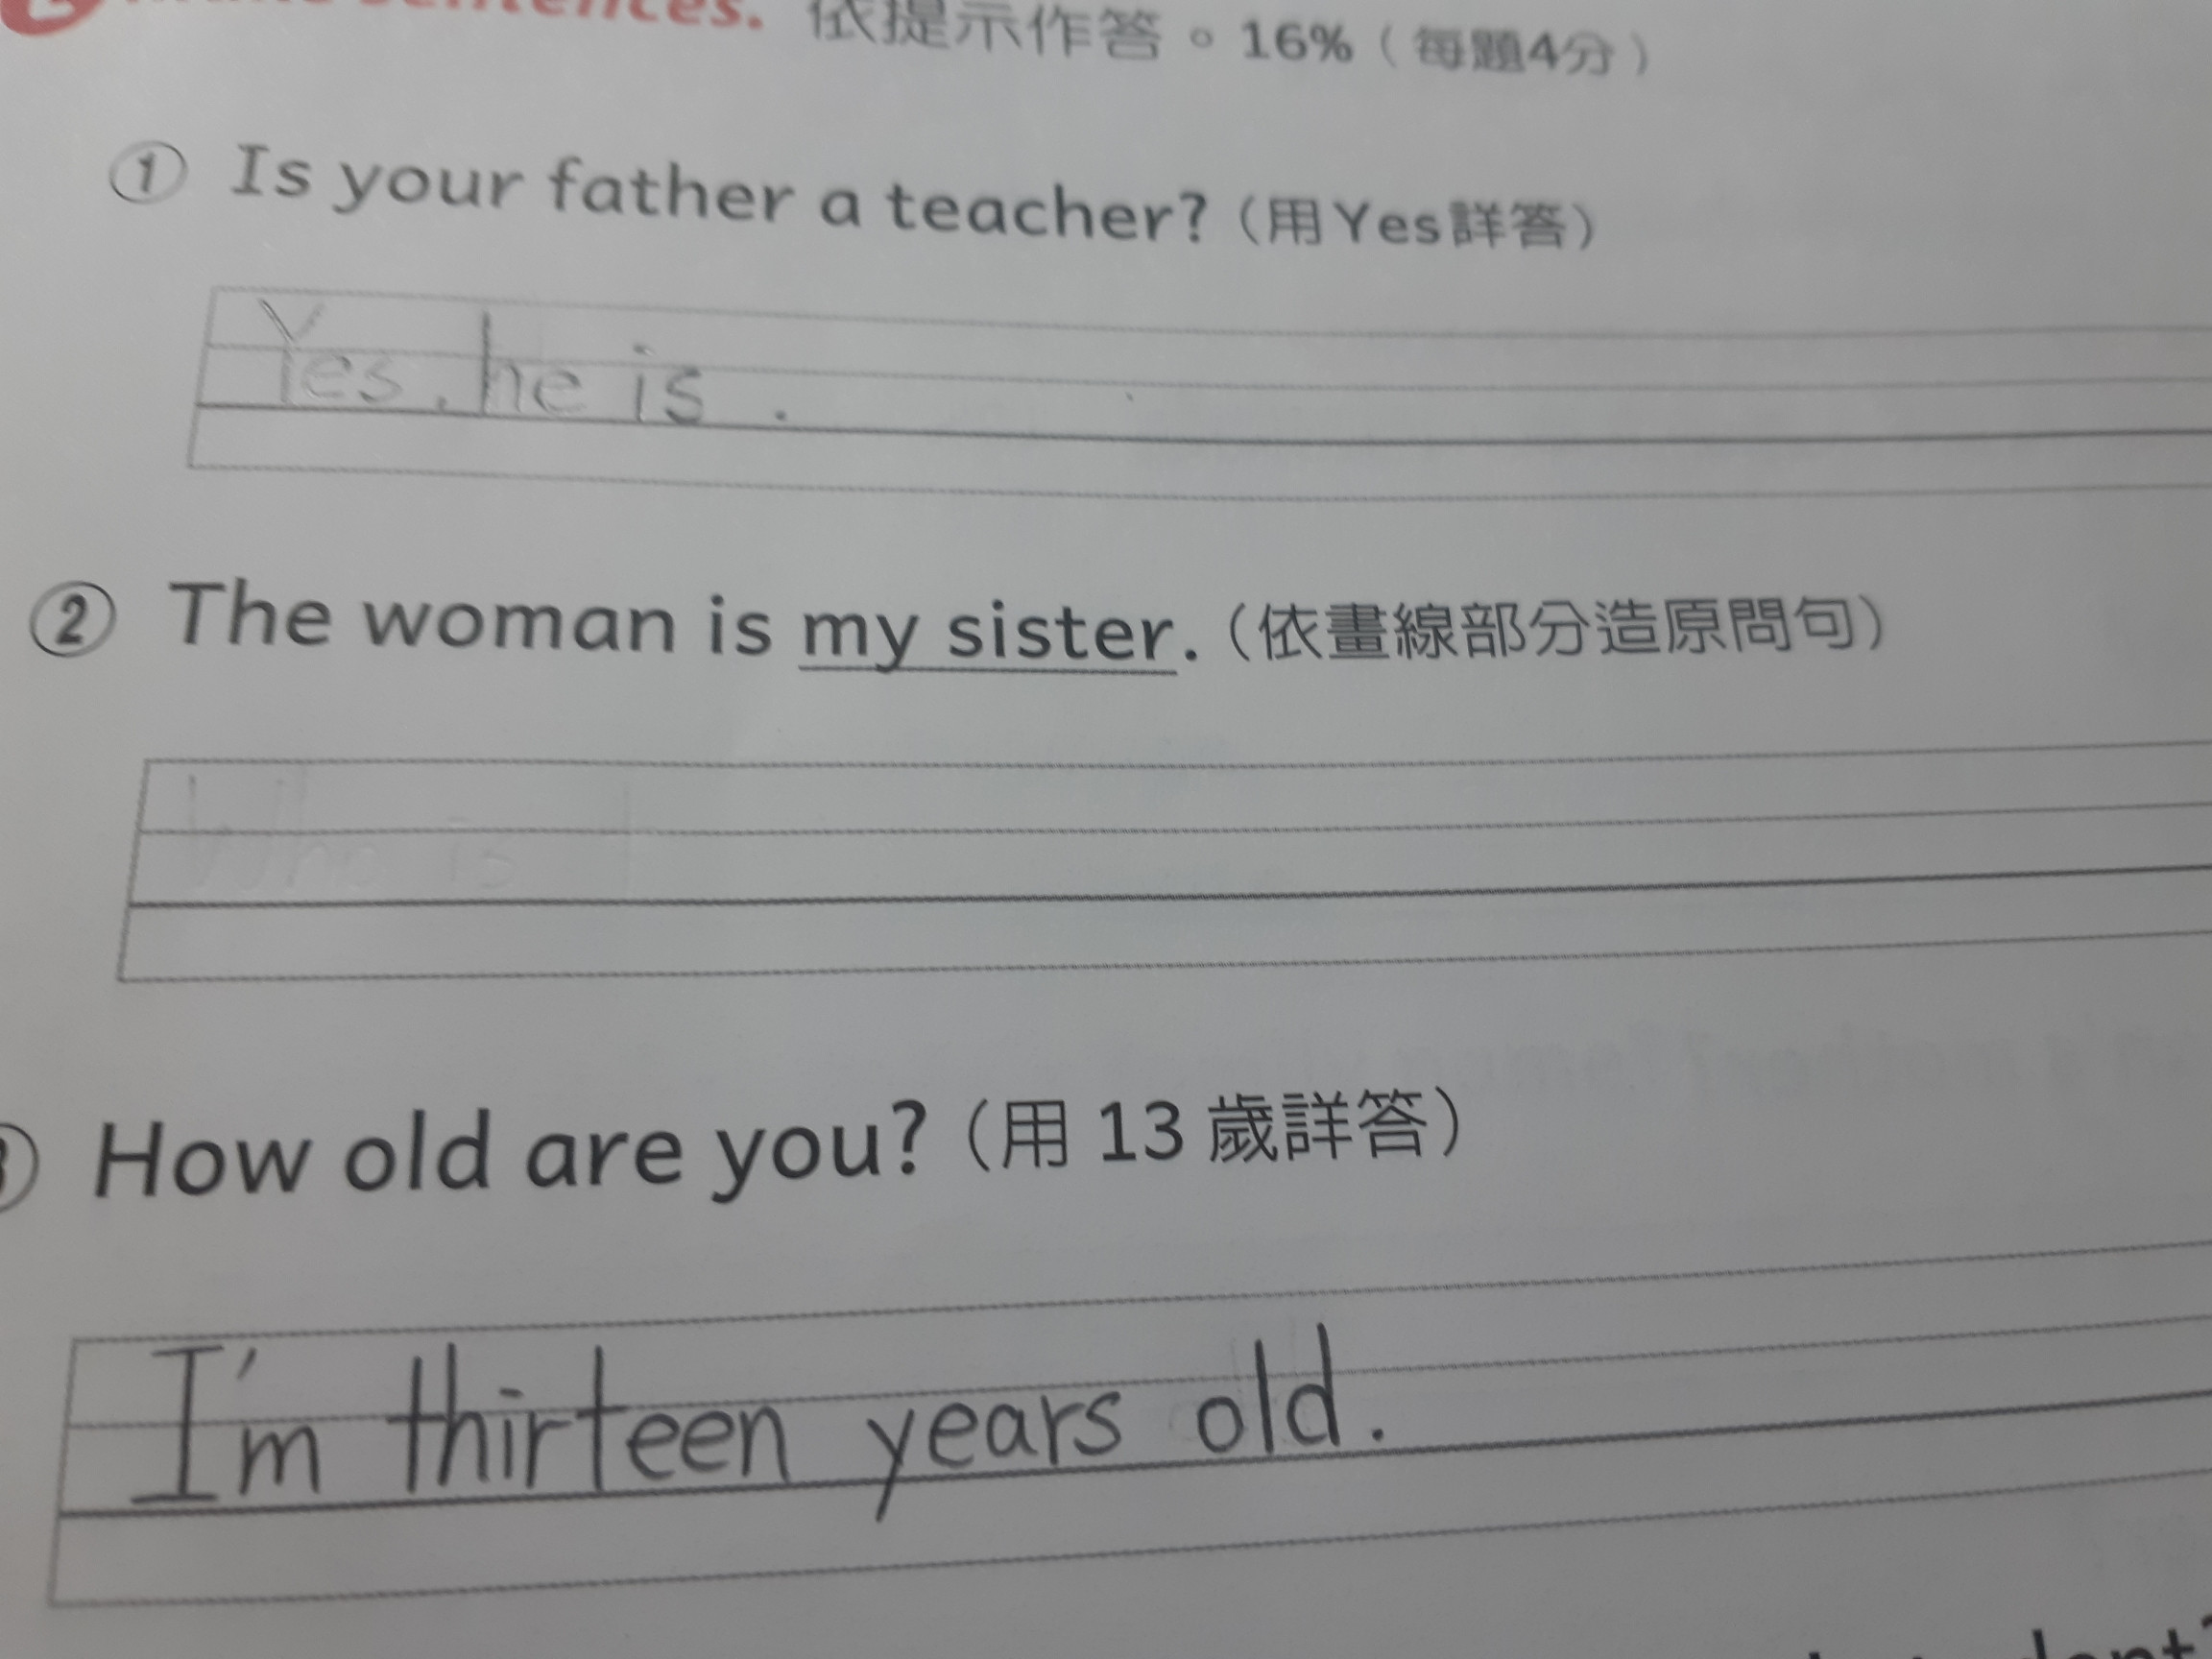 sentences. 依提示作答。16%（每題4分）
① Is your father a teacher?（用Yes詳答）
Yes, he is.
② The woman is my sister.（依畫線部分造原問句）
Who is
How old are you?（用 13 歲詳答）
I'm thirteen years old.